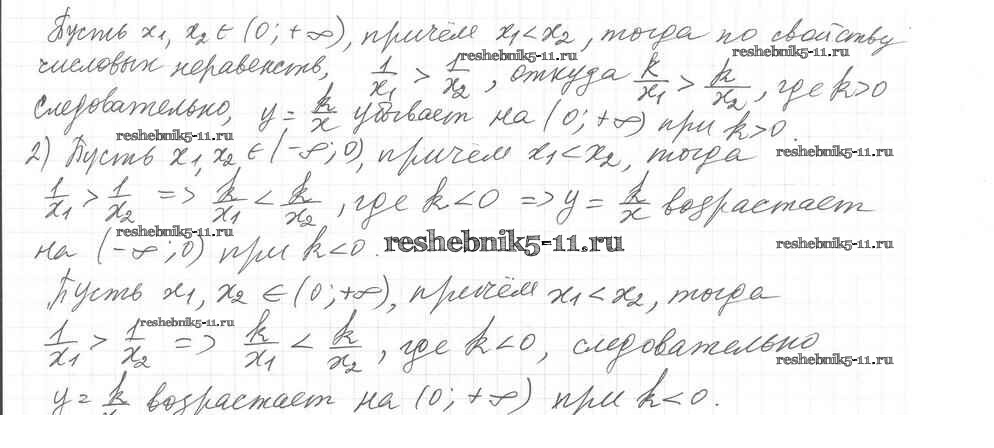 Пусть x₁, x₂ ∈ (0; +∞), причём x₁ < x₂, тогда по свойству
reshebnik5-11.ru reshebnik5-11.ru
числовых неравенств, 1/x₁ > 1/x₂, откуда k/x₁ > k/x₂, где k>0
следовательно, y = k/x убывает на (0; +∞) при k>0.
reshebnik5-11.ru
2) Пусть x₁, x₂ ∈ (-∞; 0), причём x₁ < x₂, тогда
reshebnik5-11.ru
1/x₁ > 1/x₂ => k/x₁ < k/x₂, где k<0 => y = k/x возрастает
на (-∞; 0) при k<0.
reshebnik5-11.ru reshebnik5-11.ru
Пусть x₁, x₂ ∈ (0; +∞), причём x₁ < x₂, тогда
reshebnik5-11.ru
1/x₁ > 1/x₂ => k/x₁ < k/x₂, где k<0, следовательно
reshebnik5-11.ru
y = k/x возрастает на (0; +∞) при k<0.